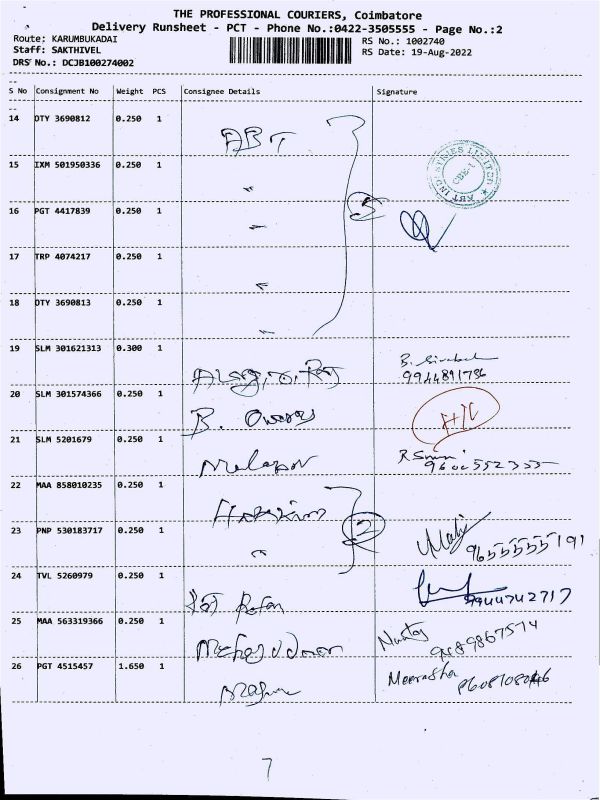 THE PROFESSIONAL COURIERS, Coimbatore
Delivery Runsheet - PCT - Phone No.:0422-3505555 - Page No.:2
Route: KARUMBUKADAI
RS No.: 1002740
Staff: SAKTHIVEL
RS Date: 19-Aug-2022
DRS No.: DCJB100274002
S No Consignment No Weight PCS Consignee Details Signature
14 DTY 3690812 0.250 1 ABT
15 IXM 501950336 0.250 1 "
ABT INDUSTRIES LIMITED
CBE-1
16 PGT 4417839 0.250 1 " 5
17 TRP 4074217 0.250 1 "
18 DTY 3690813 0.250 1 "
19 SLM 301621313 0.300 1
9944891786
20 SLM 301574366 0.250 1 B.
21 SLM 5201679 0.250 1
22 MAA 858010235 0.250 1
23 PNP 530183717 0.250 1 " 2
9655555191
24 TVL 5260979 0.250 1
9944742717
25 MAA 563319366 0.250 1
9489867574
26 PGT 4515457 1.650 1
7